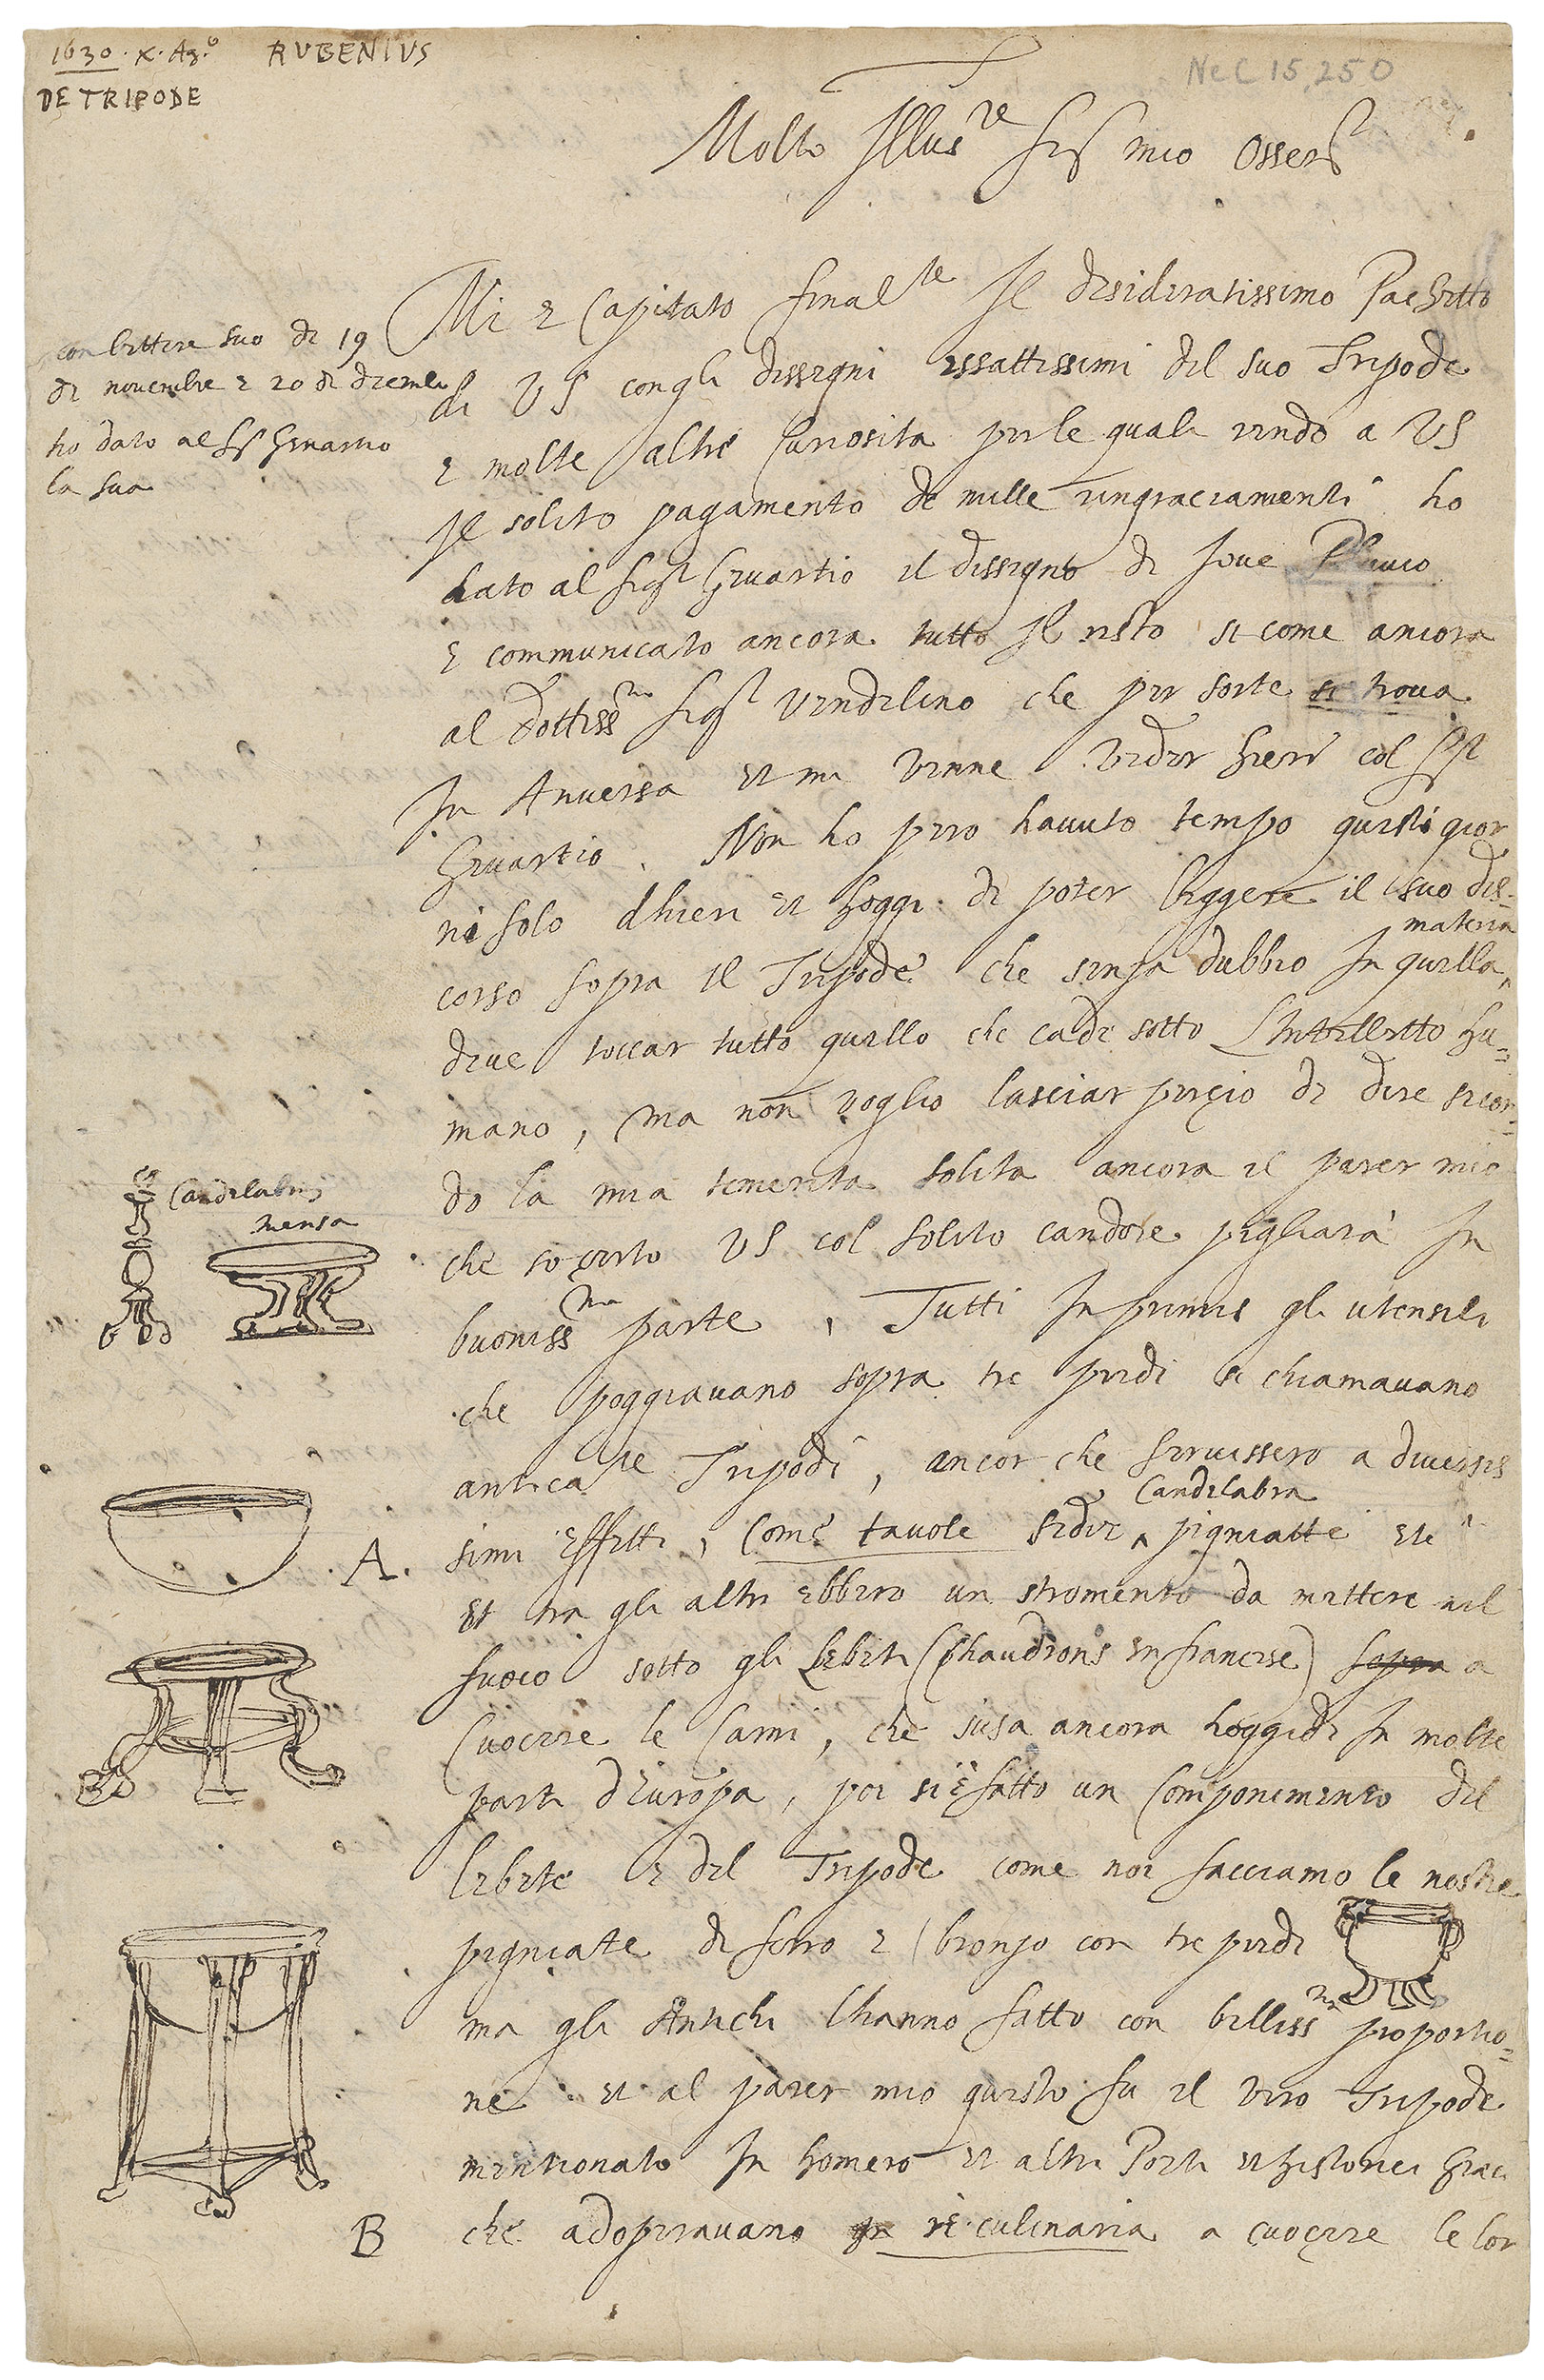 1630 · X · Ag.º RUBENIUS
DE TRIPODE
NeC 15,250
Molto Illus.re Sig.r mio Osser.
Mi è Capitato final.te Il desideratissimo Pachetto
con lettere sue di 19
di novembre e 20 di
ho dato al Sr Gevartio
la sua
di VS con gli dissegni essattissimi del suo Tripode
e molte altre Curiosita per le quali rendo a VS
Il solito pagamento de mille ringraciamenti ho
dato al sigr Gevartio il dissegno di Iove Pluvio
e communicato ancora tutto Il resto si come ancora
al dottiss.mo sigr Vendelino che per sorte si trova
In Anversa et mi venne veder hieri col Sigr
Gevartio. Non ho pero havuto tempo questi gior
ni solo dhieri et hoggi di poter leggere il suo dis-
corso sopra Il Tripode che senza dubbio In quella materia
deve toccar tutto quello che cade sotto L'Intelletto hu=
mano, ma non voglio lasciar perçio di dire secon=
do la mia temerita solita ancora il parer mio
che so certo VS col solito candore pigliarà In
Candelabrum
mensa
buoniss.ma parte, Tutti In primis gli utensili
che poggiavano sopra tre piedi si chiamavano
antica.te Tripodi, ancor che servissero a diversis
simi Effetti, Come tavole sedie Candelabra pigniatte etc
A.
Et tra gli altri Ebbero un stromento da mettere nel
fuoco sotto gli Lebeti (chaudrons en francese) sopra a
Cuocere le Carni, che s'usa ancora hoggidi In molte
parti d'Europa, poi si è fatto un Componimento del
lebete e del Tripode come noi facciamo le nostre
pigniate di ferro e bronzo con tre piedi
ma gli Antichi l'hanno fatto con belliss.ma proportio=
ne et al parer mio questo fu il vero Tripode
mentionato In homero et altri Poeti et historici Graeci
B
che adoperavano in re culinaria a cuoçere le lor